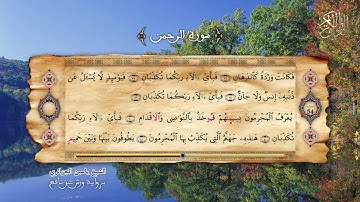 سورة الرحمن
فَكَانَتْ وَرْدَةً كَالدِّهَانِ فَبِأَيِّ ءَالَآءِ رَبِّكُمَا تُكَذِّبَانِ فَيَوْمَئِذٍ لَّا يُسْـَٔلُ عَن
ذَنۢبِهِۦٓ إِنسٌ وَلَا جَآنٌّ فَبِأَيِّ ءَالَآءِ رَبِّكُمَا تُكَذِّبَانِ
يُعْرَفُ الْمُجْرِمُونَ بِسِيمَٰهُمْ فَيُؤْخَذُ بِالنَّوَٰصِى وَالْأَقْدَامِ فَبِأَيِّ ءَالَآءِ رَبِّكُمَا
تُكَذِّبَانِ هَٰذِهِۦ جَهَنَّمُ الَّتِى يُكَذِّبُ بِهَا الْمُجْرِمُونَ يَطُوفُونَ بَيْنَهَا وَبَيْنَ حَمِيمٍ
الشيخ ياسين الجزائري
برواية ورش عن نافع